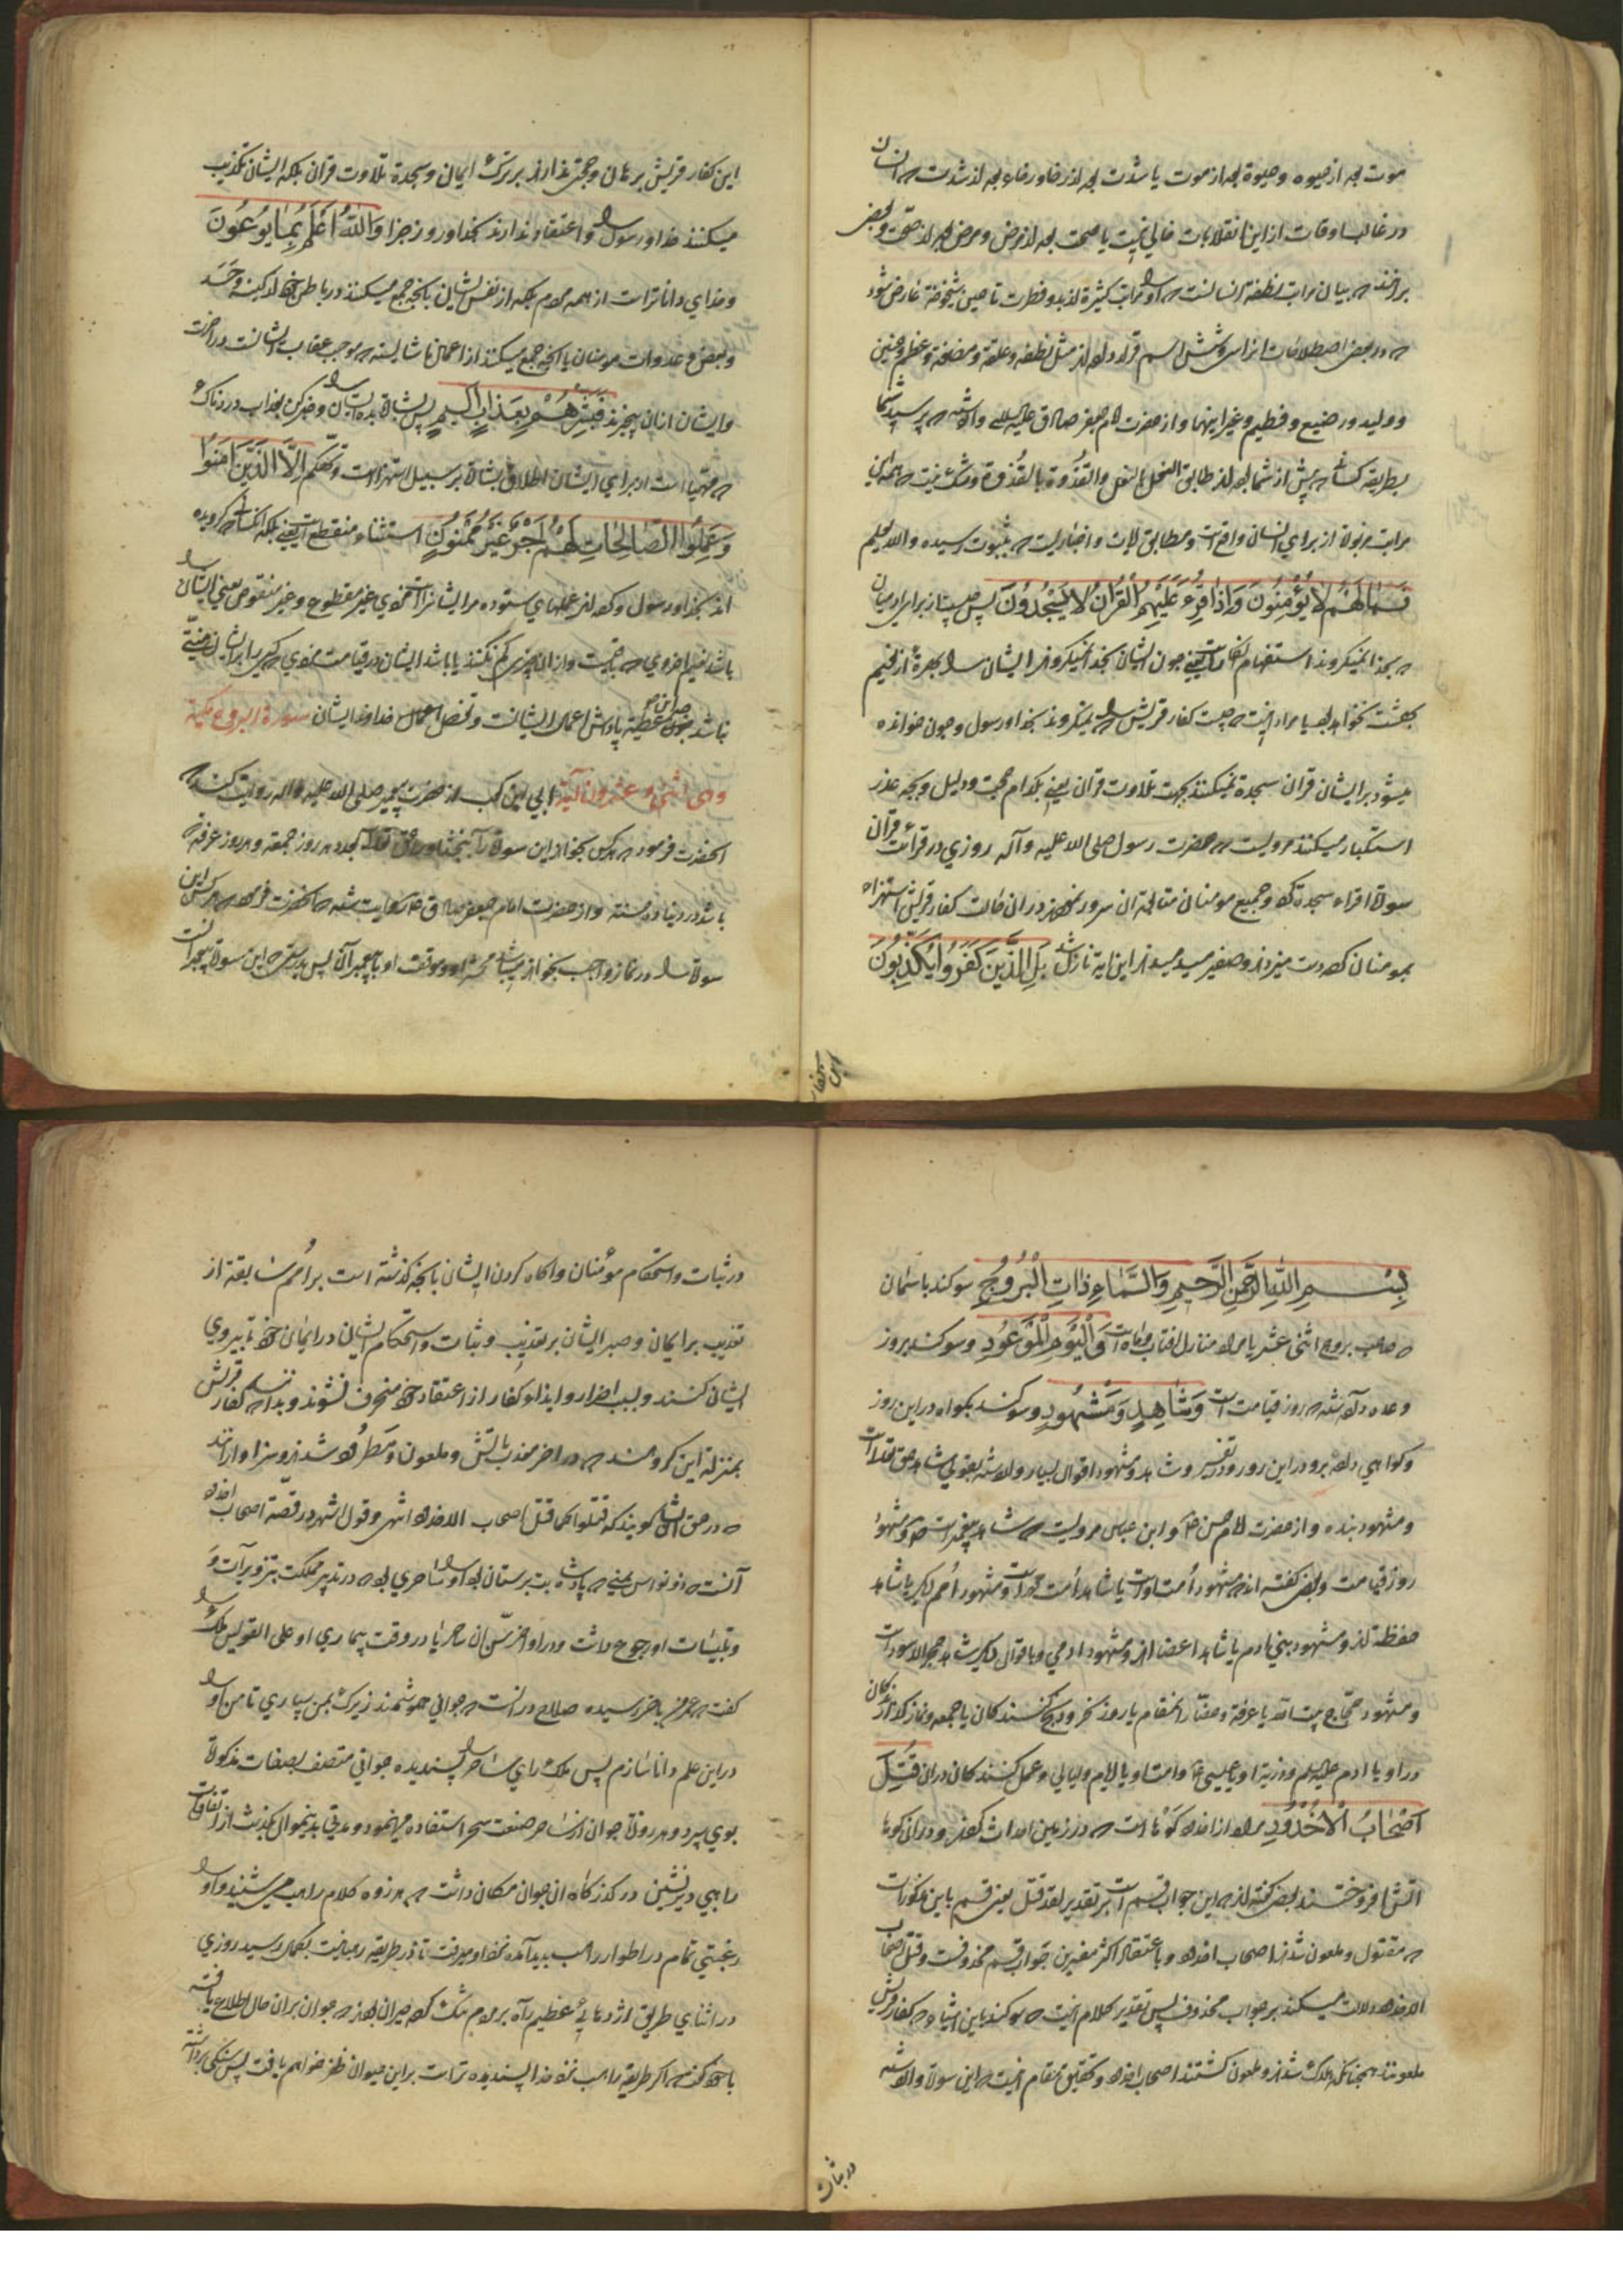 موت بعد از حیوه و حیوة بعد از موت یا شدت بعد از رخا و رخاء بعد از شدت که انسان
در غالب اوقات از این انقلابات خالی نیست یا صحت بعد از مرض و مرض بعد از صحت و بعضی
برانند که بیان مراتب نطفه انسانست که او را مراتب کثیرة از بدو فطرت تا حین شیخوخة عارض شود
که در بعضی اصطلاحات انرا سی و شش اسم قرار داده اند مثل نطفه و علقه و مضغة و عظم و جنین
و ولید و رضیع و فطیم و غیر اینها و از حضرت امام جعفر صادق علیه السلم وارد شده که پرسید شما
بطریقه کسانیکه پیش از شما بوده اند طابق النعل بالنعل والقذوة بالقذوة و شک نیست که همه این
مراتب مزبوة از برای انسان واقع است و مطابق ایات و اخباریست که بثبوت رسیده والله یعلم
فَمَا لَهُمْ لا یُؤْمِنُونَ وَاِذا قُرِءَ عَلَیْهِمُ الْقُرْانُ لا یَسْجُدُونَ پس چیست از برای ایشان
که بخدا نمیگروند استفهام انکار است یعنی چون ایشان بخدا نمیگروند ایشان را بهرهٔ از نعیم
بهشت نخواهد بود یا مراد اینست که چیست کفار قریش را که نمیگروند بخدا و رسول و چون خوانده
میشود بر ایشان قران سجدة نمیکنند بجهت تلاوت قران یعنی بکدام حجت و دلیل و بچه عذر
استکبار میکنند مرویست که حضرت رسول صلی الله علیه و آله روزی در قرائت قران
سورة اقراء سجدة کرد و جمیع مومنان متابعة ان سرور نمودند در ان حالت کفار قریش استهزاء
بمومنان کرده دست میزدند و صفیر میدمیدند این ایة نازل شد بَلِ الَّذینَ کَفَرُوا یُکَذِّبُونَ
این کفار
این کفار قریش برهان و حجتی ندارند بر ترک ایمان و سجدة تلاوت قران بلکه ایشان تکذیب
میکنند خدا و رسول را و اعتقاد ندارند بخدا و روز جزا وَاللّٰهُ اَعْلَمُ بِمٰا یُوعُونَ
و خدای داناتر است از همه مردم بلکه از نفس ایشان بانچه جمع میکنند در باطن خود از کینه و حسد
و بغض و عداوات مومنان یا انچه جمع میکنند از اعمال ناشایسته که موجب عقاب ایشانست در اخرت
و ایشان از ان بیخبرند فَبَشِّرْهُمْ بِعَذابٍ اَلیمٍ پس بشارة بده ایشان را و خبر کن بعذاب دردناک
که مهیا است از برای ایشان اطلاق بشارة بر سبیل استهزا است و تهکم اِلَّا الَّذینَ اٰمَنُوا
وَعَمِلُوا الصّالِحاتِ لَهُمْ اَجْرٌ غَیْرُ مَمْنُونٍ استثناء منقطع است یعنی بلکه انکسانیکه گرویده
اند بخدا و رسول و کرده اند عملهای ستوده مر ایشانراست مزدی غیر مقطوع و غیر منقوص یعنی ایشان را
باشد نعیم اخروی که باقیست و از ان چیزی کم نکنند یا باشد ایشان در قیامت مزدی که کسی را بر ایشان منتی
نباشد چون عطیه پاداش اعمال ایشانست و تفضل خداوند ایشان سورة البروج مکیة
وهی اثنی و عشرون ایة ابی ابن کعب از حضرت پیغمبر صلی الله علیه و اله روایت کند که
انحضرت فرمود که هر کس بخواند این سورة را ببخشد او را حق تعالی بعدد هر روز جمعه و هر روز عرفة که
باشد در دنیا ده حسنة و از حضرت امام جعفر صادق ع روایت شده که انحضرت فرمود که هر کس این
سورة را در نماز واجب بخواند باشد محشر او و موقف او با پیغمبران پس بدرستی که این سورة پیغمبرانست
بِسْمِ اللّٰهِ الرَّحْمٰنِ الرَّحیمِ وَالسَّمٰاءِ ذاتِ الْبُرُوجِ سوکند باسمان
که صاحب بروج اثنی عشر یا مراد منازل افتاب و ماه است وَالْیَوْمِ الْمَوْعُودِ و سوکند بروز
وعده داده شده که روز قیامت است وَشٰاهِدٍ وَمَشْهُودٍ و سوکند بکواه در این روز
و کواهی داده بر او در این روز و در تفسیر شاهد و مشهود اقوال بسیار وارد شده بقولی شاهد حق تعالی است
و مشهود بنده و از حضرت امام حسن ع و ابن عباس مرویست که شاهد پیغمبر است ص و مشهود
روز قیامت و بعضی گفته اند که مشهود امت اوست یا شاهد امت محمد است و مشهود امم دیگر یا شاهد
حفظة اند و مشهود بنی ادم یا شاهد اعضا اند و مشهود ادمی و باقوال دیگر شاهد حجر الاسود است
و مشهود حجاج بیت الله یا عرفة و حضار انمقام یا روز نحر و ذبح کنندکان یا جمعه و نماز گذارندکان
در او یا ادم علیه السلم و ذریة او یا عیسی ع و امت او یا ایام و لیالی و عمل کنندکان در ان قُتِلَ
اَصْحٰابُ الْاُخْدُودِ مراد از اخدود کوها است که در زمین احداث کردند و در ان کوها
اتش افروختند بعضی کفته اند که این جواب قسم است بر تقدیر لقد قتل یعنی قسم باین مذکورات
که مقتول و ملعون شدند اصحاب اخدود و باعتقاد اکثر مفسرین جواب قسم محذوفست و قتل اصحاب
الاخدود دلالت میکند بر جواب محذوف پس تقدیر کلام اینست که سوکند باین اشیاء که کفار قریش
ملعونند همچنانکه هلاک شدند و ملعون کشتند اصحاب اخدود و تحقیق مقام اینست که این سورة وارد شده
در ثبات
در ثبات و استحکام مؤمنان و اکاه کردن ایشان بانچه کذشته است بر امم سابقة از
تعذیب بر ایمان و صبر ایشان بر تعذیب و ثبات و استحکام ایشان در ایمان خود تا پیروی
ایشان کنند و بسبب اضرار و ایذاء کفار از اعتقاد خود منحرف نشوند و بدانند که کفار قریش
بمنزلة این کروهند که در اخر معذب باتش و ملعون و مطرود شدند و سزاوارند
که در حق ایشان کویند که قتلوا کما قتل اصحاب الاخدود انتهی و قول اشهر در قصّة اصحاب اخدود
آنست که ذو نواس یمنی که پادشاه بت پرستان بود او را ساحری بود که در تدبیر مملکت بتزویرات و
تلبیسات او رجوع داشت و در اواخر سن ان ساحر یا در وقت بیماری او علی القولین ملک را
کفت که عمر من باخر رسیده صلاح در انست که جوانی هوشمند زیرک بمن سپاری تا من او را
در این علم دانا سازم پس ملک رای ساحر را پسندیده جوانی متصف بصفات مذکورة
بوی سپرد و هر روزة جوان از ساحر صنعت سحر استفاده مینمود و مدتی بدینموال بکذشت از اتفاقات
راهبی دیرنشین در کذرکاه ان جوان مکان داشت که هر روزه کلام راهب می شنید و او را
رغبتی تمام در اطوار راهب پدید آمده نزد او میرفت تا در طریقه رهبانیت بکمال رسید روزی
در اثنای طریق اژدهائی عظیم راه بر مردم تنک کرده حیران بودند که جوان بر ان حال اطلاع یافته
با خود کفت که اکر طریقه راهب نزد خدا پسندیده تر است بر این حیوان ظفر خواهم یافت پس سنکی برداشته